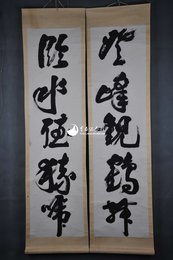 登峰觀鶴舞
臨水聽猿啼